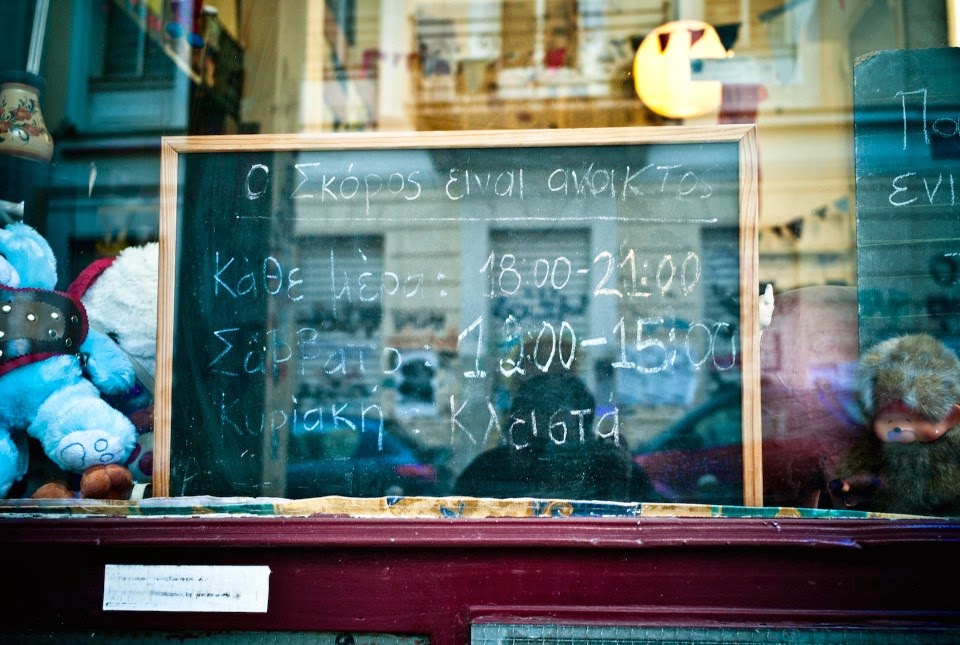 Ο Σκόρος είναι ανοικτός
Κάθε μέρα: 18:00-21:00
Σάββατο: 12:00-15:00
Κυριακή: Κλειστά